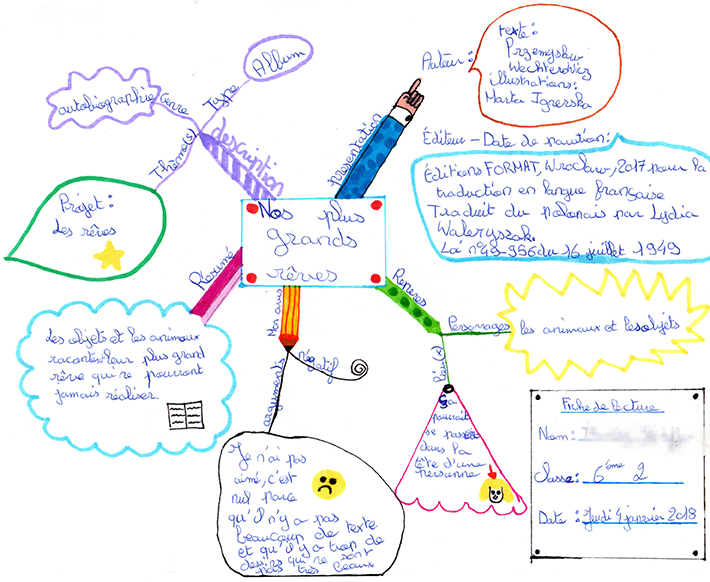 Nos plus
grands
rêves
description
Type
Album
Genre
autobiographie
Thème(s)
Projet :
Les rêves
présentation
Auteur :
texte :
Przemysław
Wechterowicz
illustrations :
Marta Ignerska
Éditeur - Date de parution :
Éditions FORMAT, Wrocław, 2017 pour la
traduction en langue française
Traduit du polonais par Lydia
Waleryszak.
Loi n°49-956 du 16 juillet 1949
Résumé
Les objets et les animaux
racontent leur plus grand
rêve qu'ils ne pourront
jamais réaliser.
Mon avis
négatif
arguments
Je n'ai pas
aimé, c'est
nul parce
qu'il n'y a pas
beaucoup de texte
et qu'il y a trop de
dessins qui ne sont
pas très beaux
Repères
Personnages
les animaux et les objets
lieu(x)
ça
pourrait
se passer
dans la
tête d'une
personne
Fiche de lecture
Nom :
Classe : 6ème 2
Date : Jeudi 4 janvier 2018